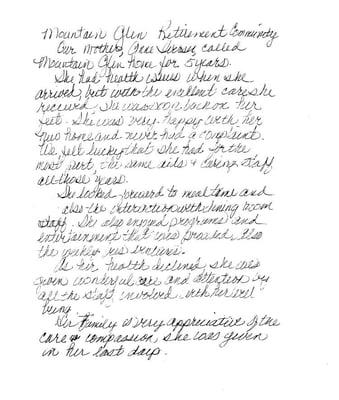 Mountain Glen Retirement Community
Our Mother, called
Mountain Glen home for 5 years.
She had health issues when she
arrived, but with the excellent care she
received, she was soon back on her
feet. She was very happy with her
new home and never had a complaint.
We felt lucky that she had for the
most part, the same aids & caring staff
all those years.
She looked forward to meal time and
also the interaction with dining room
staff. She also enjoyed programs and
entertainment that was provided, also
the weekly
As her health declined, she was
given wonderful care and attention by
all the staff involved with her well
being.
Her Family is very appreciative of the
care & compassion she was given
in her last days.